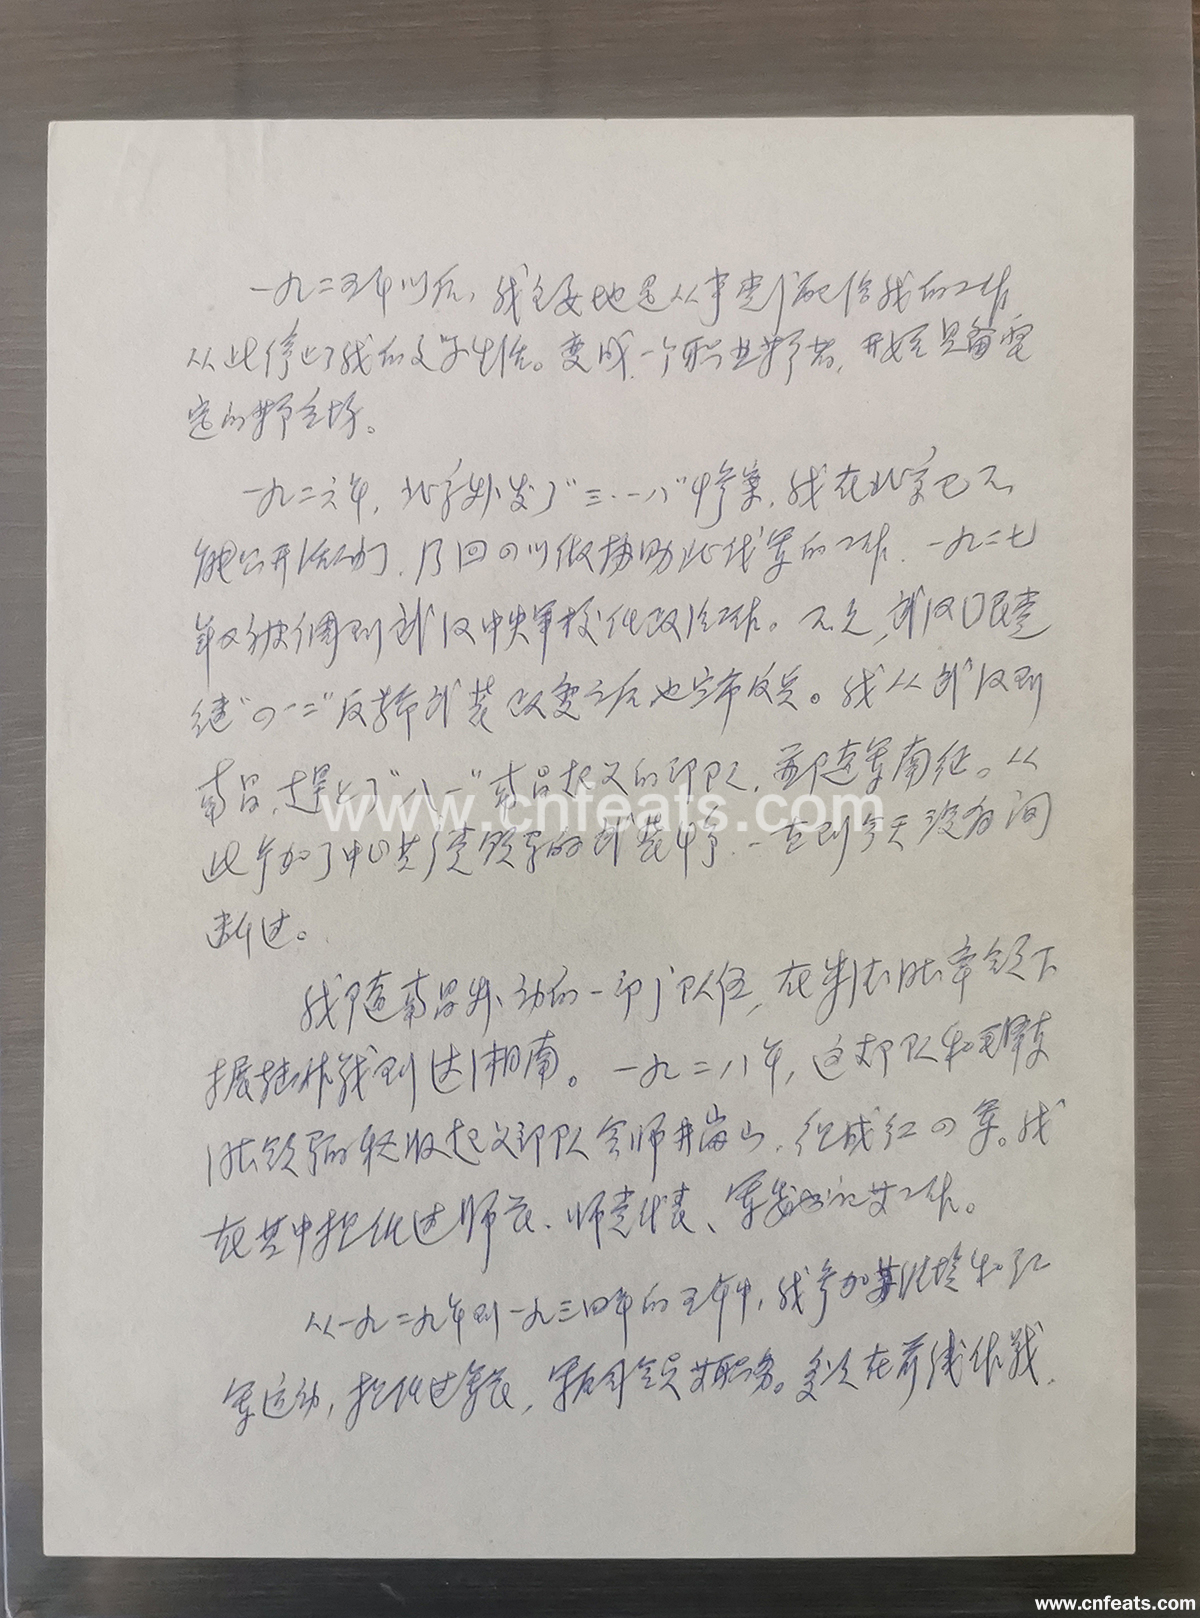 一九二五年以后，我主要地是从事党分配给我的工作
从此停止了我的文学生活。变成一个职业革命者，开始具备坚
定的革命立场。
一九二六年，北京爆发了"三·一八"惨案，我在北京已不
能公开活动，乃回四川做协助北伐军的工作。一九二七
年又被调到武汉中央军校任政治工作。不久，武汉国民党
继"四·一二"反革命武装政变之后也宣布反共。我从武汉到
南昌，赶上了"八一"南昌起义的部队，并即随军南征。从
此参加了中国共产党领导的武装斗争，一直到今天没有间
断过。
我随南昌暴动的一部分队伍，在朱德同志率领下
转战到达湘南。一九二八年，这部队和毛泽东
同志领导的秋收起义部队会师井岗山，组成红四军。我
在其中担任过师长、师党代表、军委书记等工作。
从一九二九年到一九三四年的五年中，我参加苏区和红
军运动，担任过军长，军区司令员等职务。多次在前线作战，
www.cnfeats.com
www.cnfeats.com